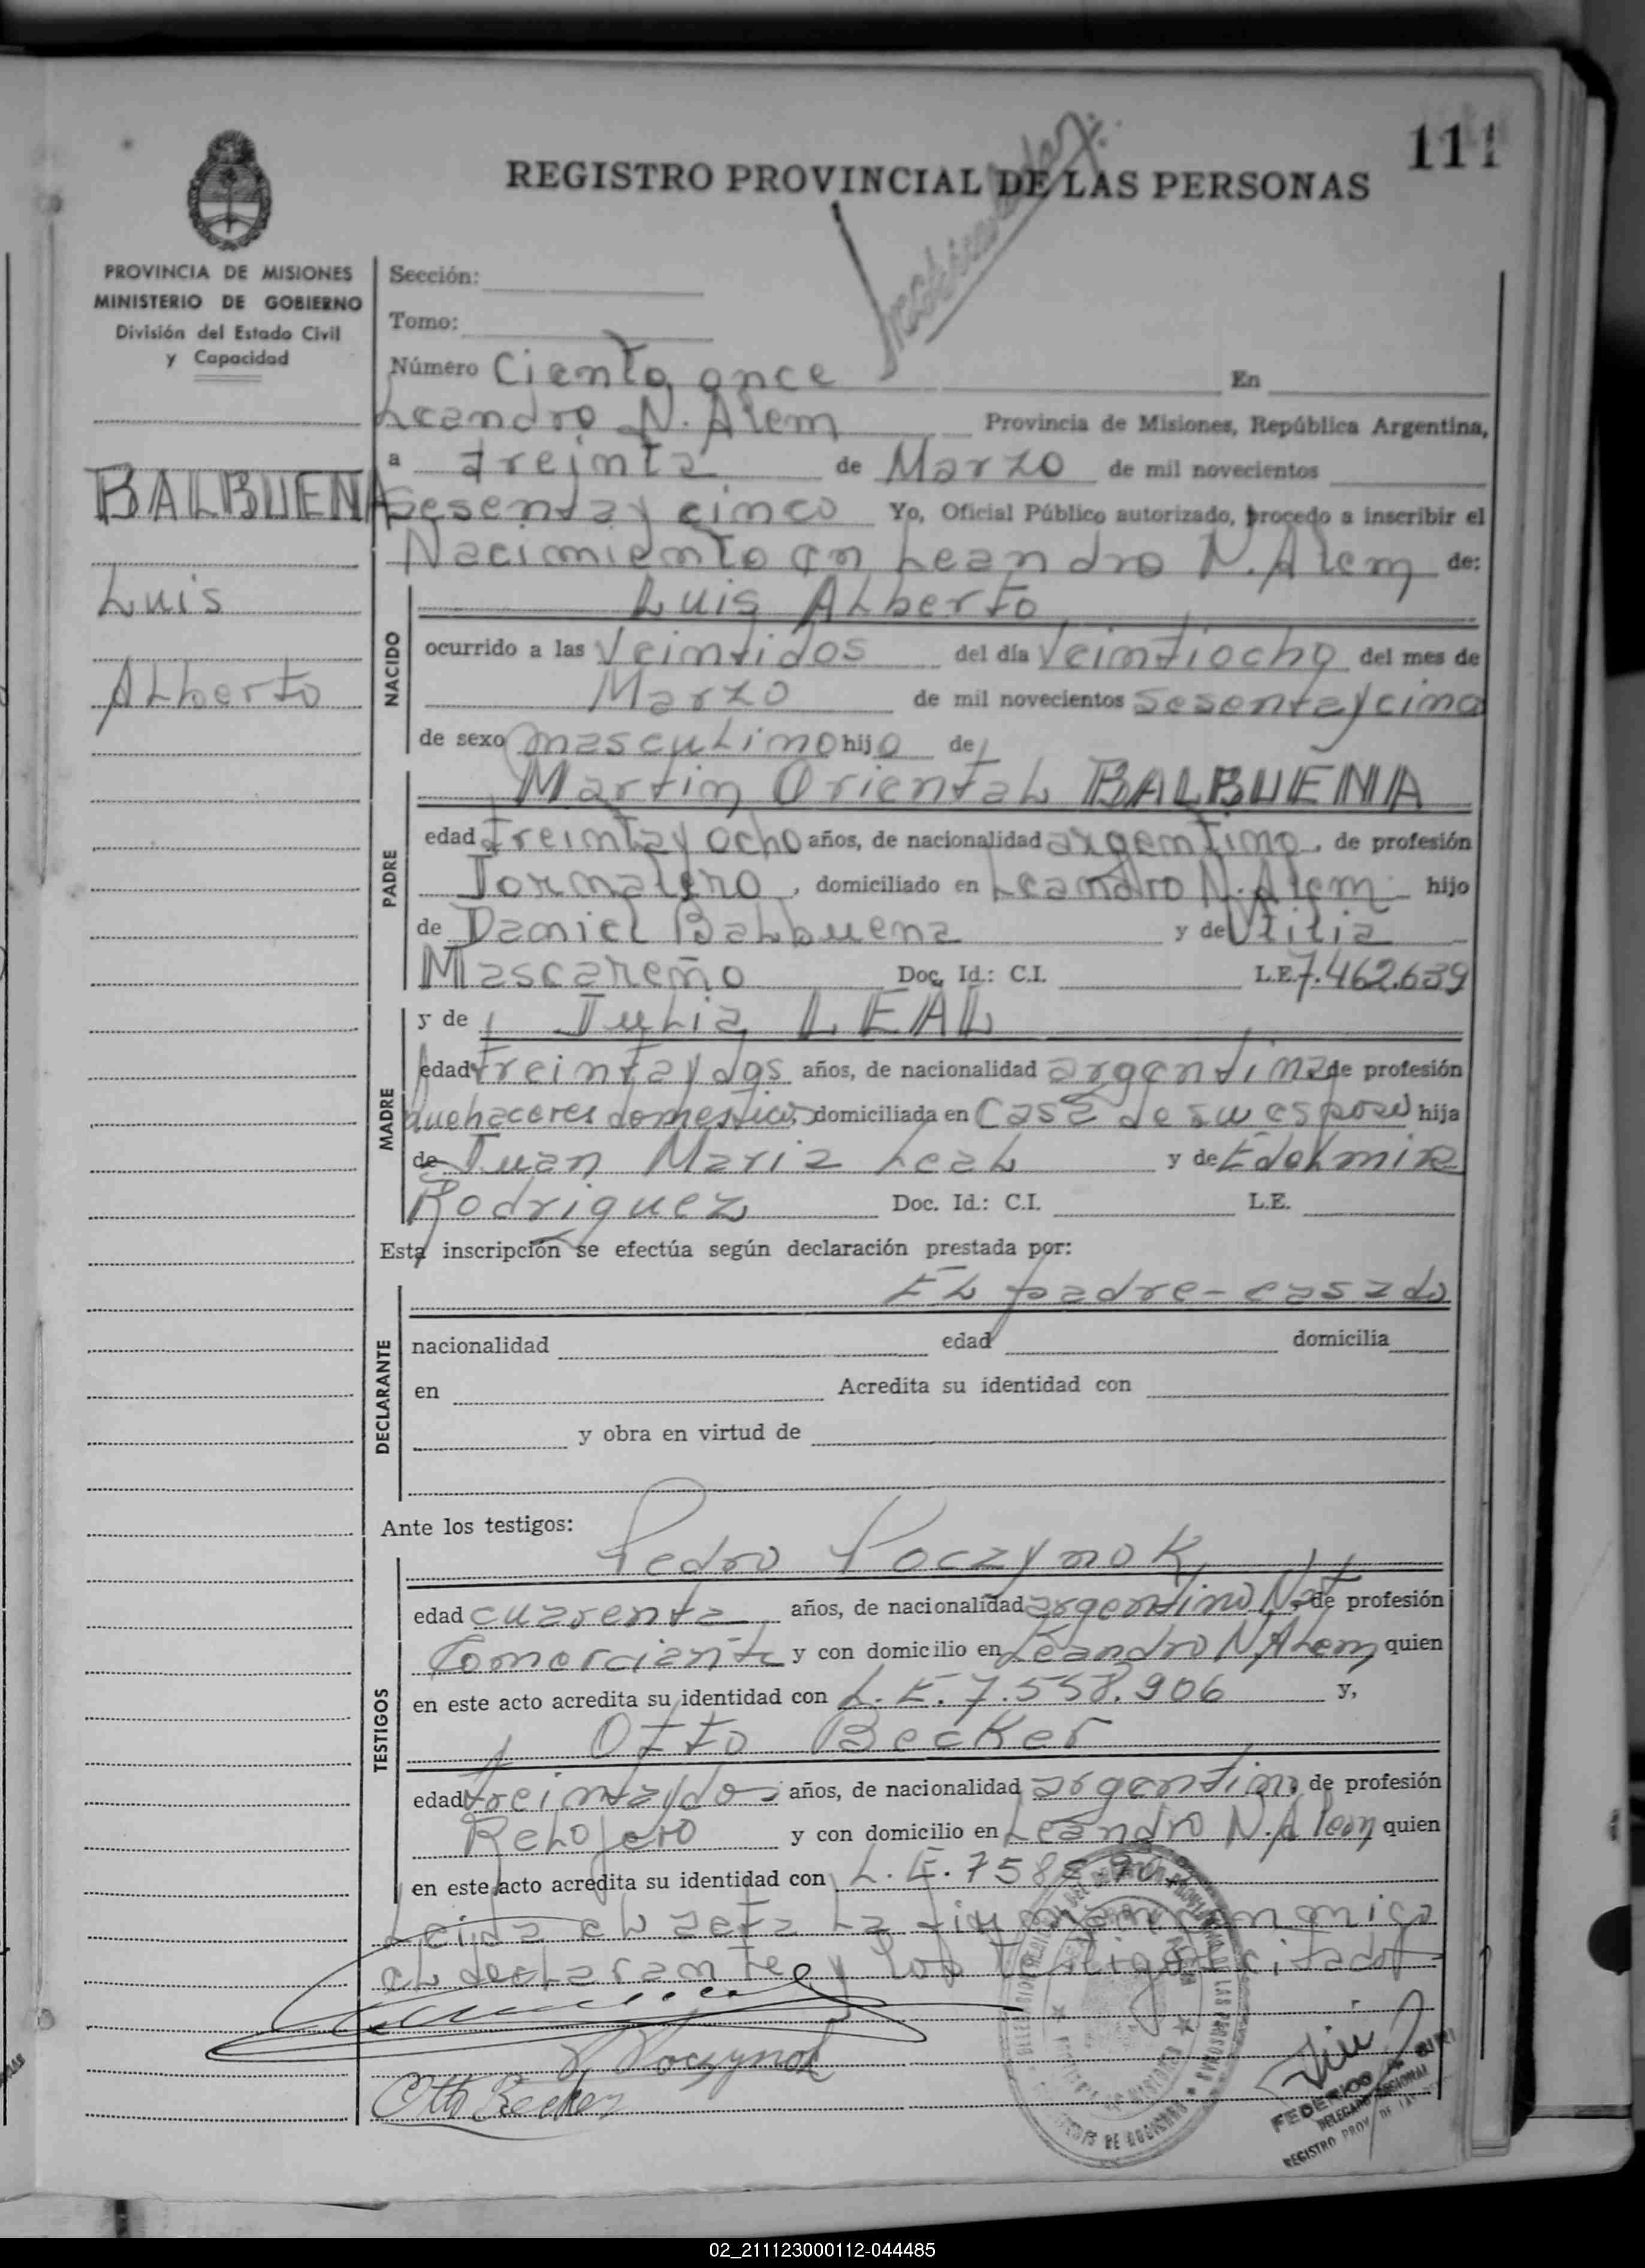 111
REGISTRO PROVINCIAL DE LAS PERSONAS
PROVINCIA DE MISIONES
MINISTERIO DE GOBIERNO
División del Estado Civil
y Capacidad
BALBUENA
Luis
Alberto
Sección:
Tomo:
Número Ciento once En
Leandro N. Alem Provincia de Misiones, República Argentina,
a treinta de Marzo de mil novecientos
Sesenta y cinco Yo, Oficial Público autorizado, procedo a inscribir el
Nacimiento en Leandro N. Alem de:
NACIDO
Luis Alberto
ocurrido a las Veintidos del día Veintiocho del mes de
Marzo de mil novecientos sesentaycinco
de sexo masculino hijo de
PADRE
Martin Oriental BALBUENA
edad treintay ocho años, de nacionalidad argentino, de profesión
Jornalero, domiciliado en Leandro N. Alem hijo
de Daniel Balbuena y de Utilia
Mascareño Doc. Id.: C.I. L.E. 7.462.639
MADRE
y de Julia LEAL
edad treintaydos años, de nacionalidad argentina de profesión
quehaceres domesticos, domiciliada en casa de su esposo hija
de Juan Maria Leal y de Edelmira
Rodriguez Doc. Id.: C.I. L.E.
Esta inscripción se efectúa según declaración prestada por:
DECLARANTE
El padre - casado
nacionalidad edad domicilia
en Acredita su identidad con
y obra en virtud de
Ante los testigos:
TESTIGOS
Pedro Poczynok
edad cuarenta años, de nacionalidad argentino Nat. de profesión
Comerciante y con domicilio en Leandro N Alem quien
en este acto acredita su identidad con L.E. 7.558.906 y,
Otto Becker
edad treintaydos años, de nacionalidad argentino, de profesión
Relojero y con domicilio en Leandro N. Alem quien
en este acto acredita su identidad con L.E. 758
Leida el acta la firman conmigo
el declarante y los testigos citados
Poczynok
Otto Becker
FEDERICO
DELEGADO REGIONAL
REGISTRO PROV. DE LAS
02_211123000112-044485